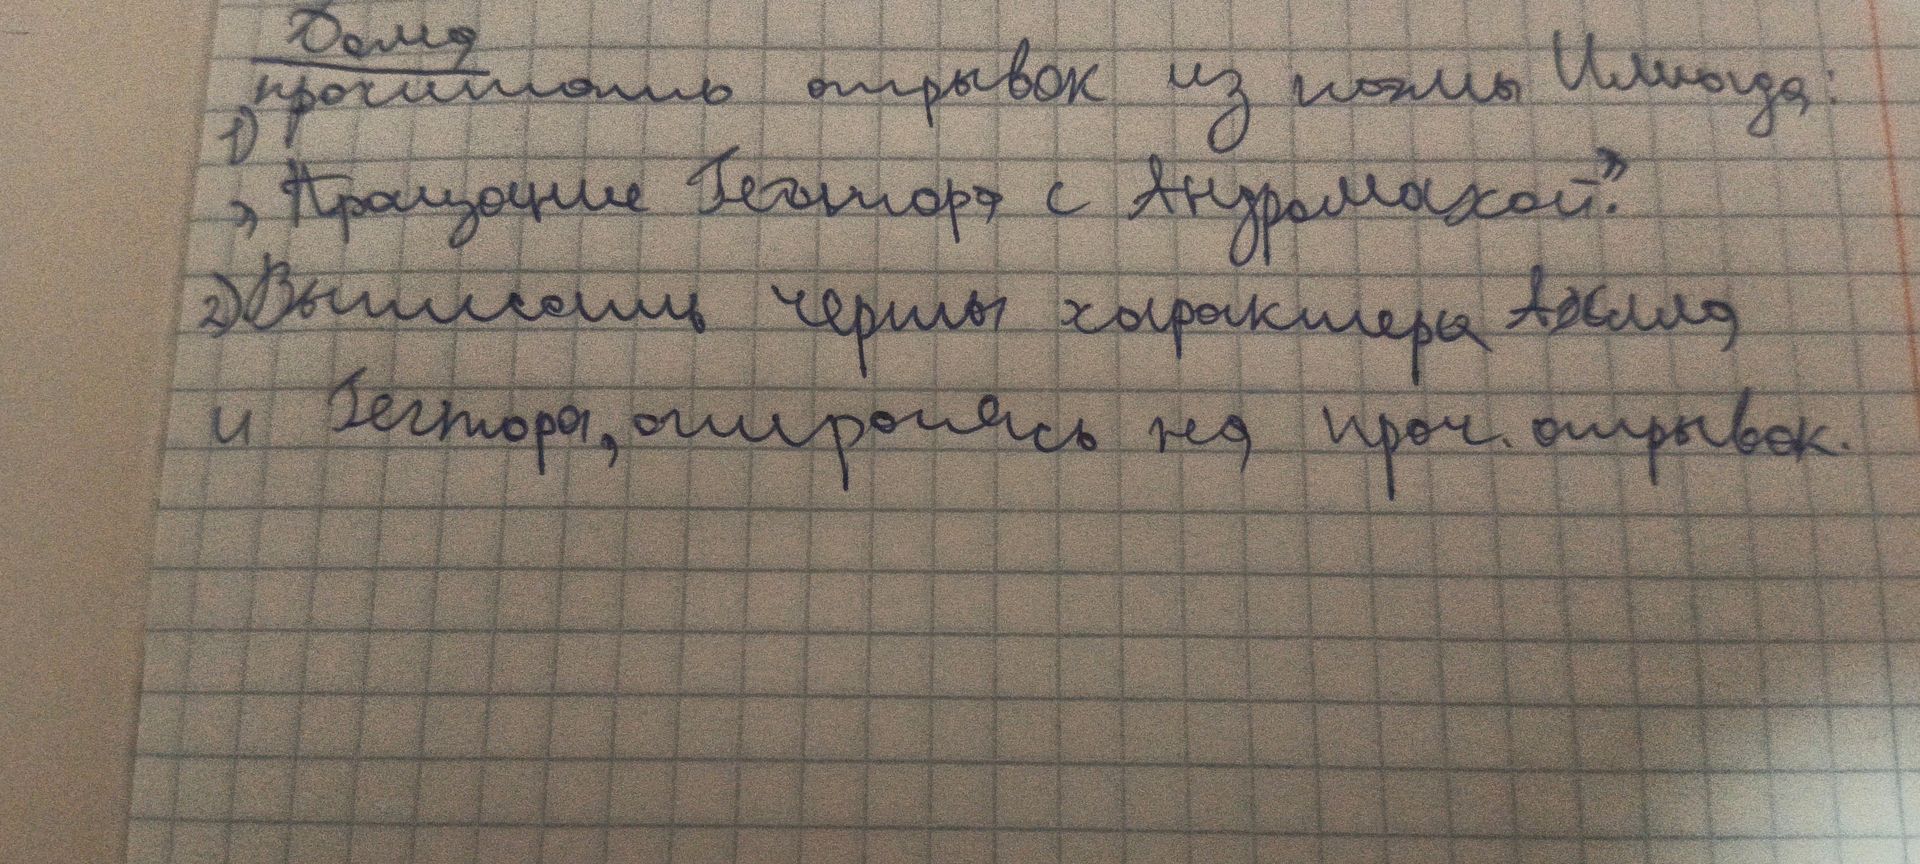 Дома
прочитать отрывок из поэмы Илиада:
1)
„Прощание Гектора с Андромахой".
2) Выписать черты характера Ахилла
и Гектора, опираясь на проч. отрывок.